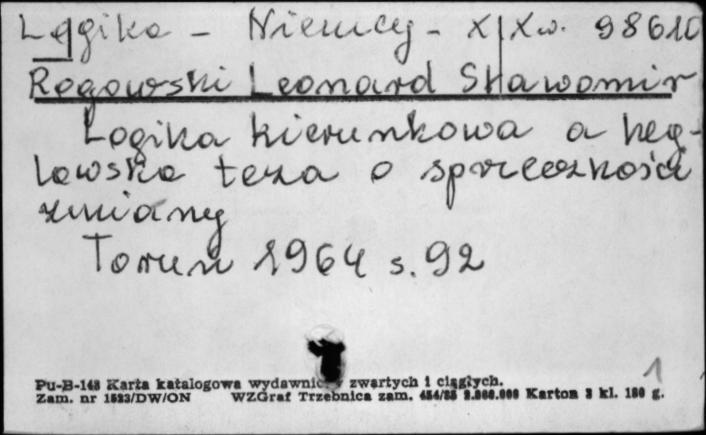 Logika - Niemcy - XIX w. 98610
Rogowski Leonard Sławomir
Logika kierunkowa a heg-
lowska teza o sprzeczności
zmiany
Toruń 1964 s. 92
1
Pu-B-148 Karta katalogowa wydawnic zwartych i ciągłych.
Zam. nr 1523/DW/ON WZGraf Trzebnica zam. Karton 3 kl. 180 g.